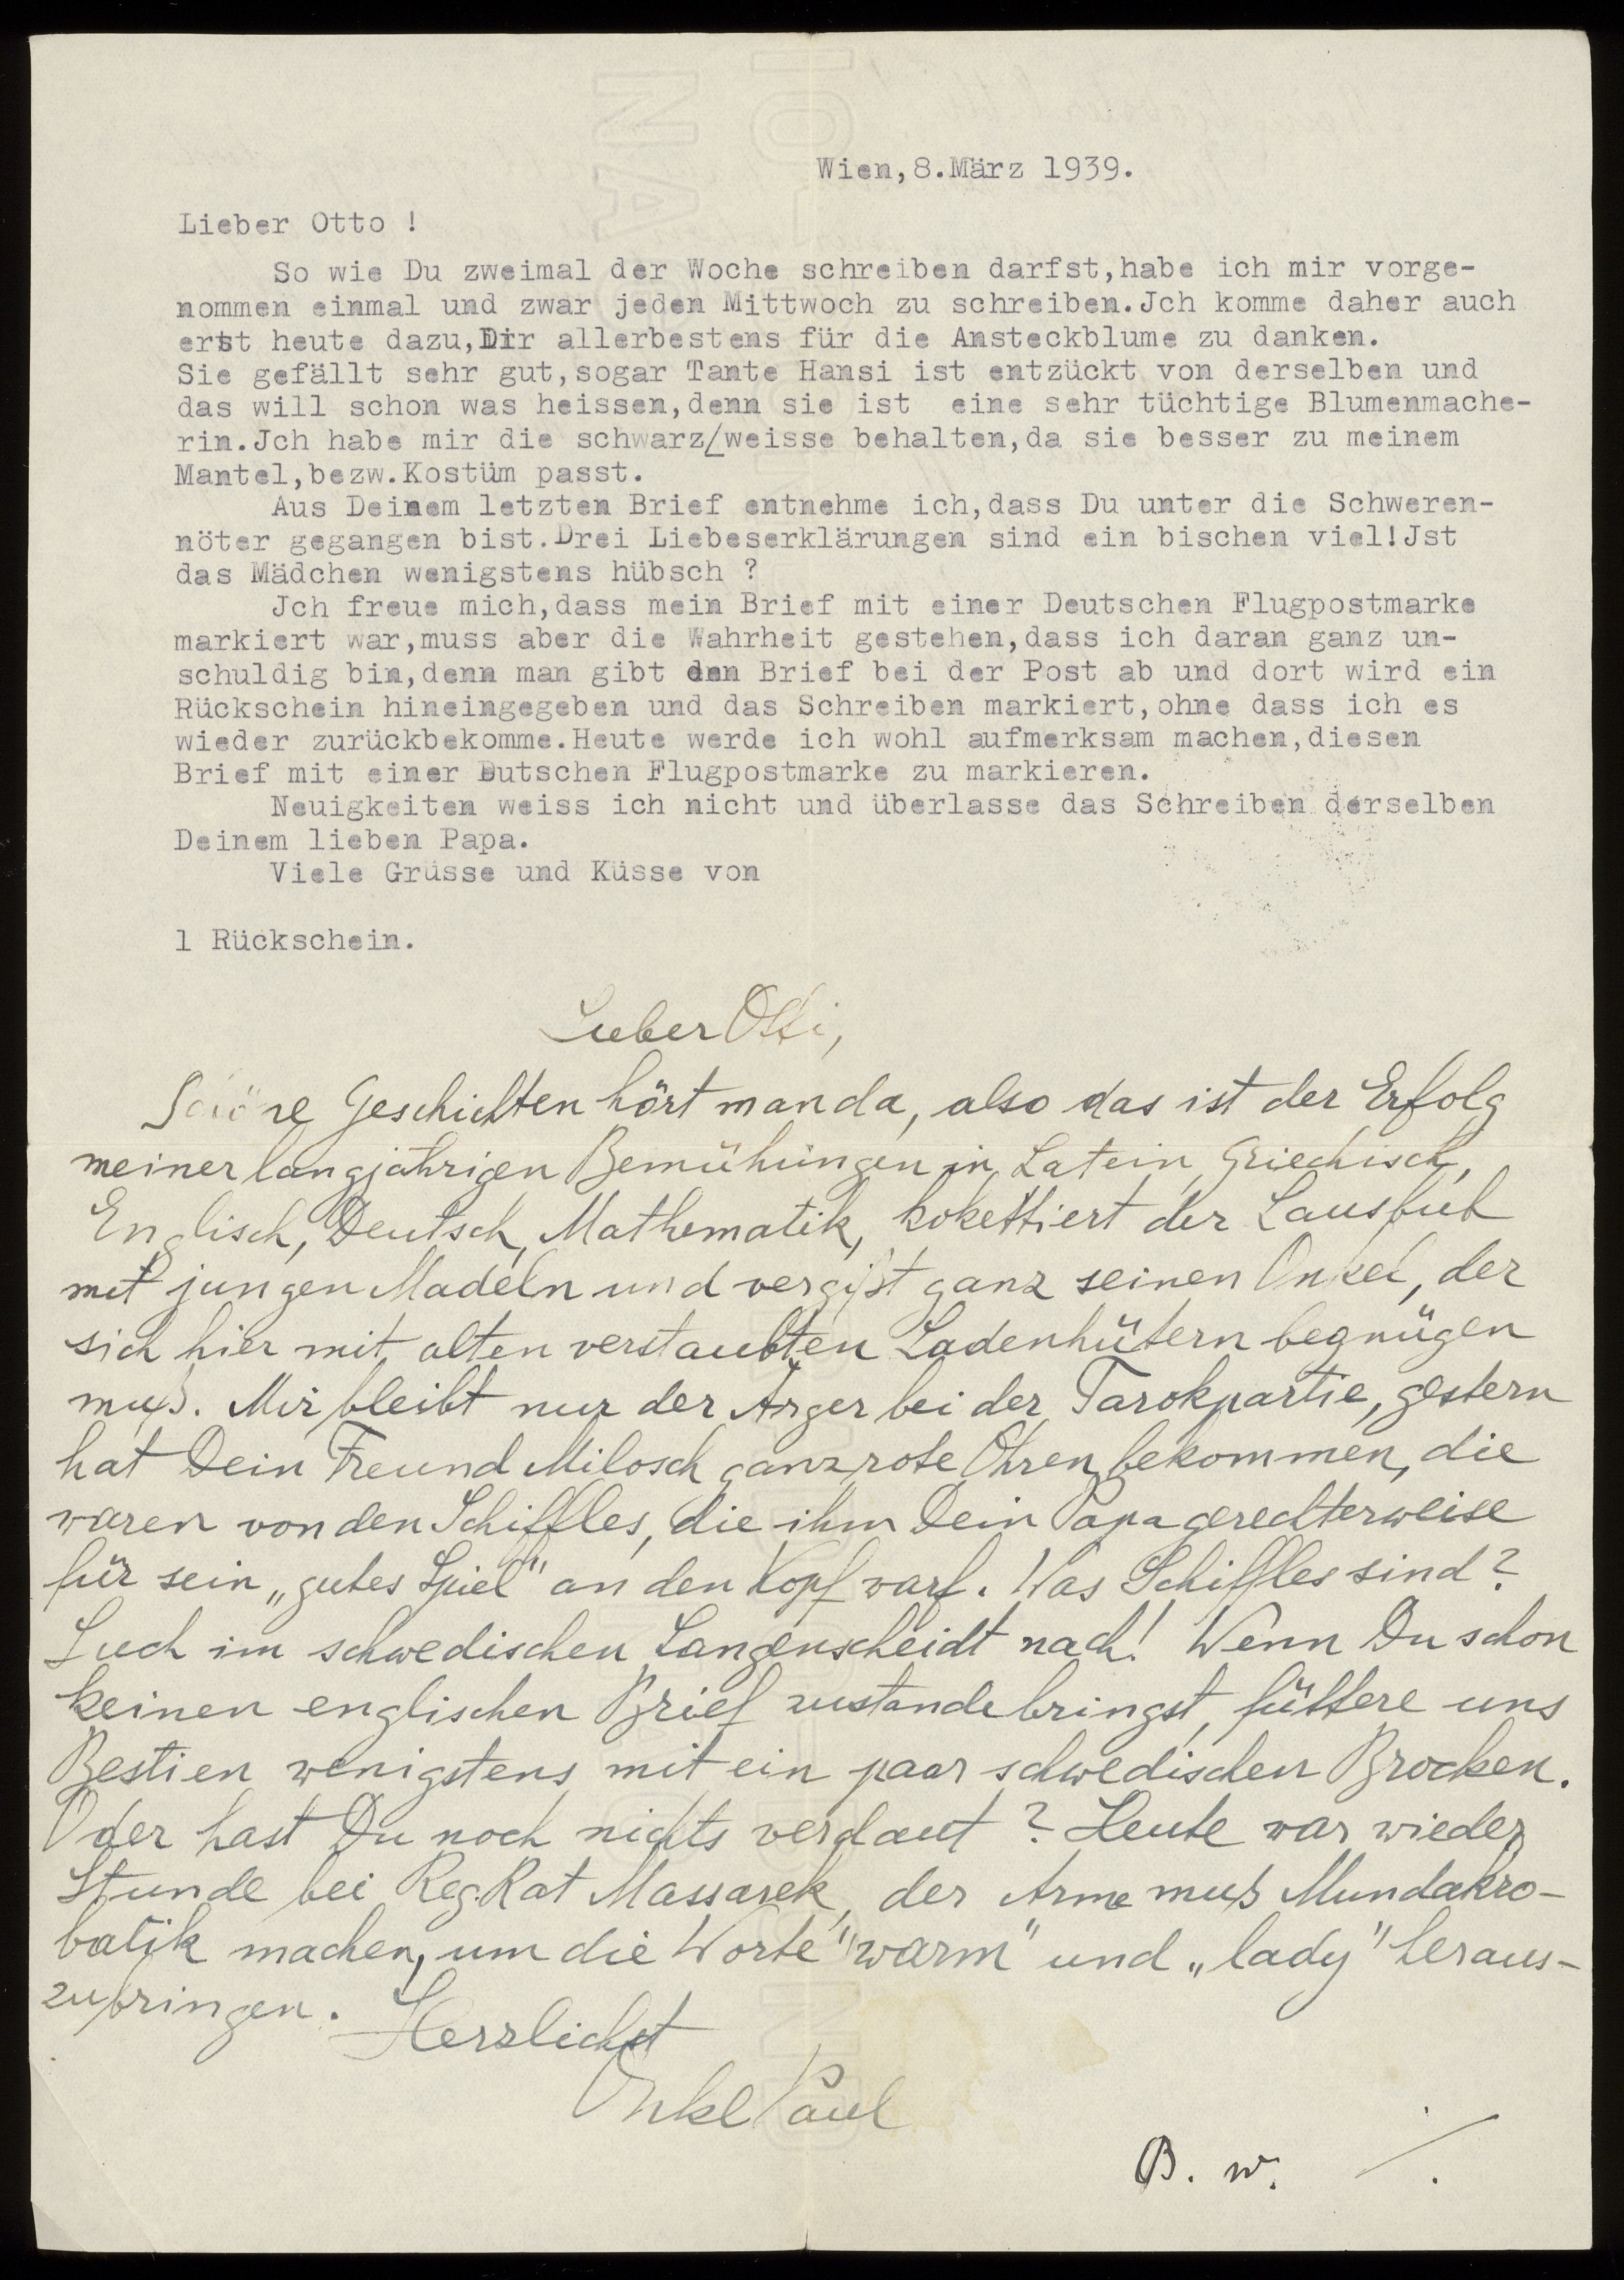 Wien,8.März 1939.
Lieber Otto !
So wie Du zweimal der Woche schreiben darfst,habe ich mir vorge-
nommen einmal und zwar jeden Mittwoch zu schreiben.Jch komme daher auch
erst heute dazu,Dir allerbestens für die Ansteckblume zu danken.
Sie gefällt sehr gut,sogar Tante Hansi ist entzückt von derselben und
das will schon was heissen,denn sie ist eine sehr tüchtige Blumenmache-
rin.Jch habe mir die schwarz/weisse behalten,da sie besser zu meinem
Mantel,bezw.Kostüm passt.
Aus Deinem letzten Brief entnehme ich,dass Du unter die Schweren-
nöter gegangen bist.Drei Liebeserklärungen sind ein bischen viel!Jst
das Mädchen wenigstens hübsch ?
Jch freue mich,dass mein Brief mit einer Deutschen Flugpostmarke
markiert war,muss aber die Wahrheit gestehen,dass ich daran ganz un-
schuldig bin,denn man gibt den Brief bei der Post ab und dort wird ein
Rückschein hineingegeben und das Schreiben markiert,ohne dass ich es
wieder zurückbekomme.Heute werde ich wohl aufmerksam machen,diesen
Brief mit einer Dutschen Flugpostmarke zu markieren.
Neuigkeiten weiss ich nicht und überlasse das Schreiben derselben
Deinem lieben Papa.
Viele Grüsse und Küsse von
1 Rückschein.
Lieber Otti,
Schöne Geschichten hört man da, also das ist der Erfolg
meiner langjährigen Bemühungen in Latein, Griechisch,
Englisch, Deutsch, Mathematik, kokettiert der Lausbub
mit jungen Madeln und vergißt ganz seinen Onkel, der
sich hier mit alten verstaubten Ladenhütern begnügen
muß. Mir bleibt nur der Ärger bei der Tarokpartie, gestern
hat Dein Freund Milosch ganz rote Ohren bekommen, die
waren von den Schiffles, die ihm Dein Papa gerechterweise
für sein „gutes Spiel" an den Kopf warf. Was Schiffles sind?
Such im schwedischen Langenscheidt nach! Wenn Du schon
keinen englischen Brief zustandebringst, füttere uns
Bestien wenigstens mit ein paar schwedischen Brocken.
Oder hast Du noch nichts verdaut? Heute war wieder
Stunde bei Reg.Rat Massarek, der Arme muß Mundakro-
batik machen, um die Worte "warm" und „lady" heraus-
zubringen. Herzlichst
Onkel Paul
B. w. ./.